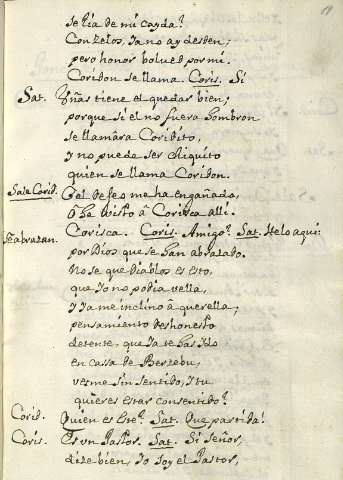 se ria de mi cayda?
Con zelos, ya no ay desden;
pero honor bolued por mi.
Coridon se llama. Coris. Si
Sat. Uñas tiene el quedar bien;
porque si el no fuera hombron
se llamâra Coribito,
y no puede ser chiquito
quien se llama Coridon.
Sale Corid. O el deseo me ha engañado,
ô he visto â Corisca alli.
Corisca. Coris. Amigo? Sat. Helo aqui:
Se abrazan. por Dios que se han abrazado.
No se que diablos es esto,
que yo no podia vella,
y ya me inclino â querella;
pensamiento deshonesto
detente, que ya te has ido
en cassa de Berzebu;
verme sin sentido, y tu
quieres estar consentido?
Corid. Quien es este? Sat. Que partida!
Coris. Es vn Pastor. Sat. Si señor,
dize bien, yo soy el Pastor,